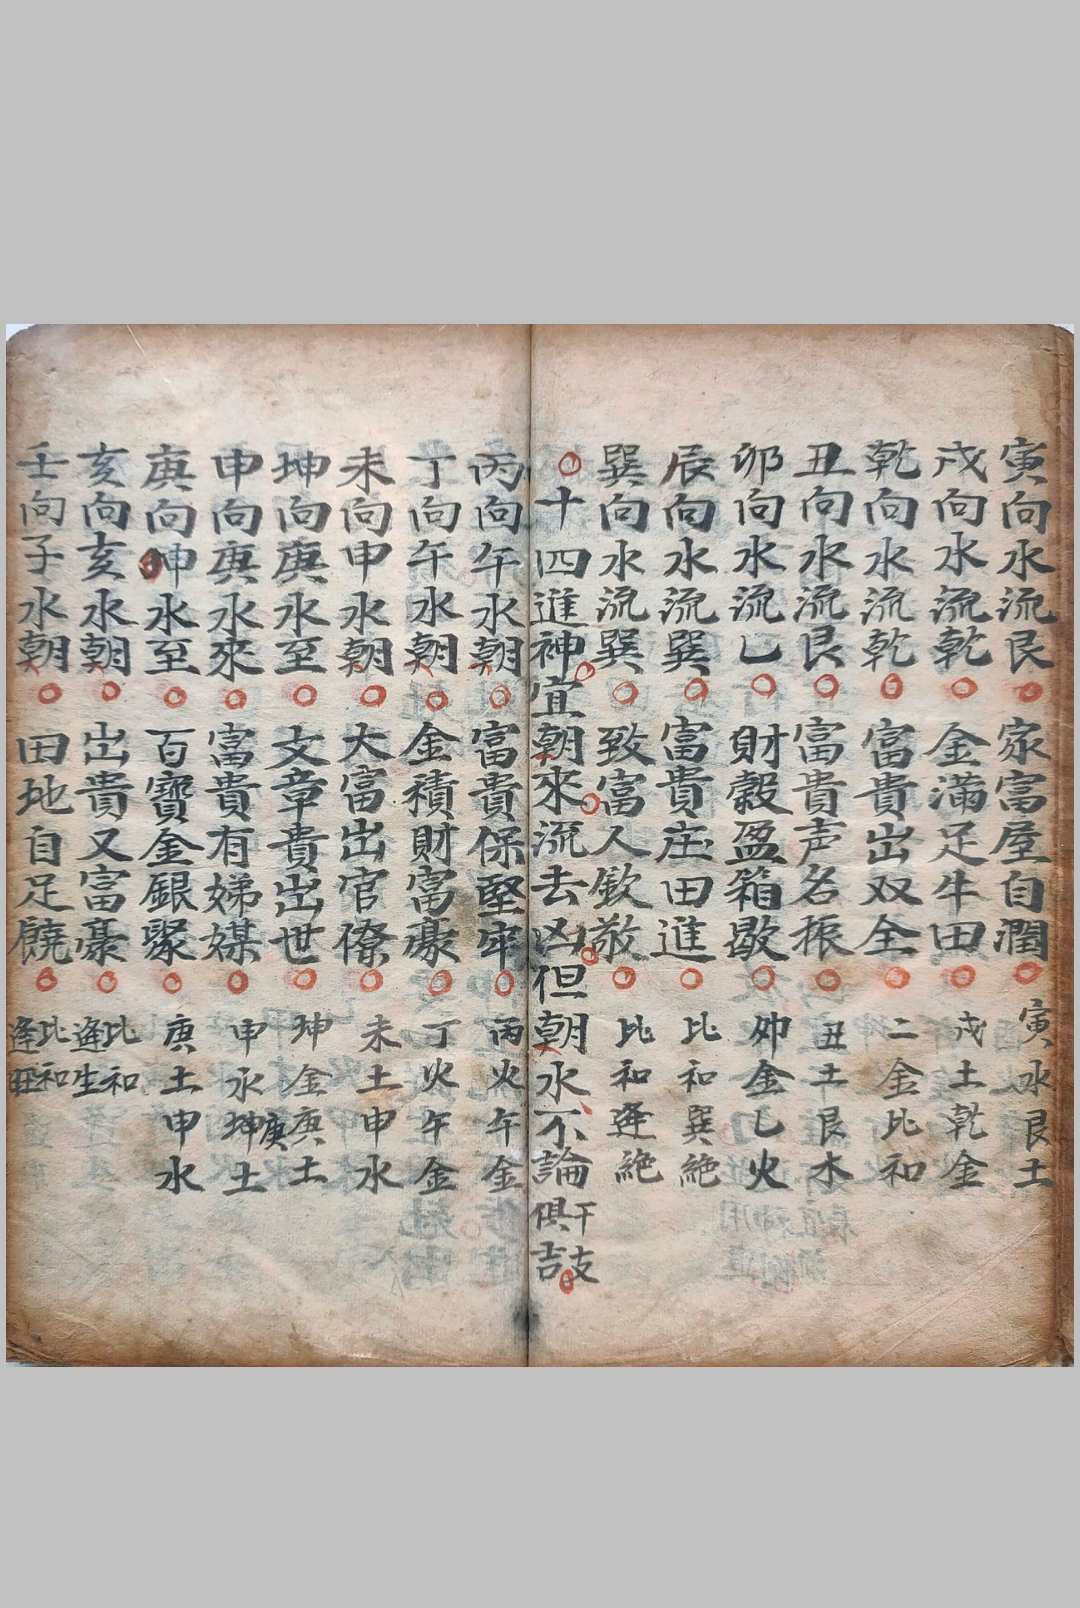 寅向水流艮○家富屋自潤○寅水艮土
戌向水流乾○金滿足牛田○戌土乾金
乾向水流乾○富貴出双全○二金比和
丑向水流艮○富貴声名振○丑土艮木
卯向水流乙○財穀盈箱○卯金乙火
辰向水流巽○富貴庄田進○比和巽絶
巽向水流巽○致富人欽敬○比和逢絶
○十四進神宜朝來流去凶但朝水不論干支俱吉
丙向午水朝○富貴保堅牢○丙火午金
丁向午水朝○金積財富豪○丁火午金
未向申水朝○大富出官僚○未土申水
坤向庚水至○文章貴出世○坤金庚土
申向庚水來○富貴有娣媒○申水坤土庚
庚向坤水至○百寶金銀聚○庚土申水
亥向亥水朝○出貴又富豪○比和逢生
壬向子水朝○田地自足饒○比和逢旺